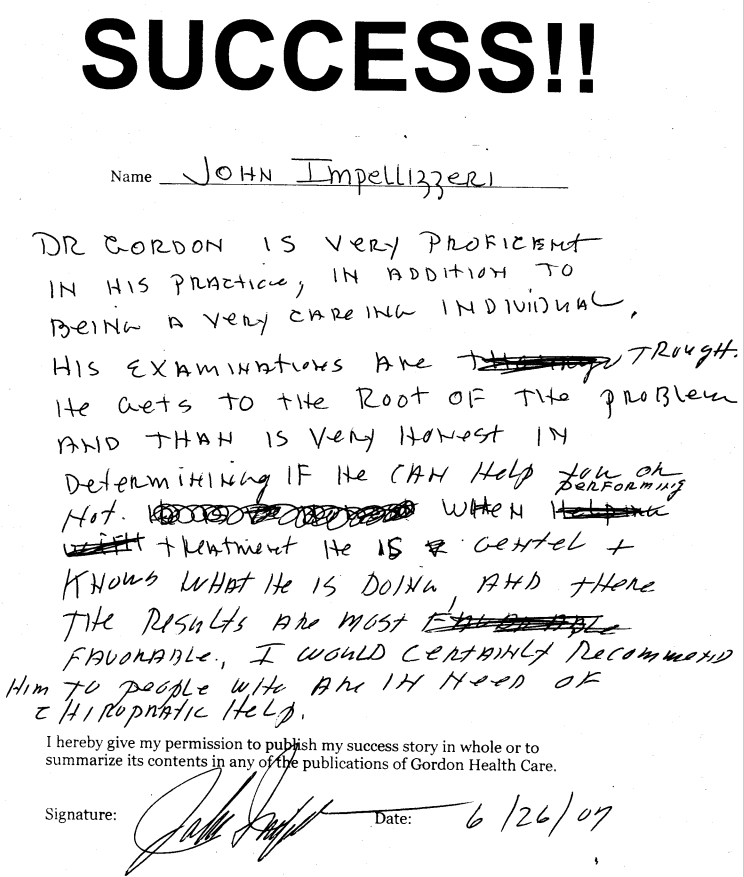 SUCCESS!!
Name JOHN IMPELLIZZERI
DR GORDON IS VERY PROFICENT
IN HIS PRACTICE, IN ADDITION TO
BEING A VERY CAREING INDIVIDUAL.
HIS EXAMINATIONS ARE TROUGH.
HE GETS TO THE ROOT OF THE PROBLEM
AND THAN IS VERY HONEST IN
DETERMINING IF HE CAN HELP YOU OR
NOT. WHEN PERFORMING
TREATMENT HE IS GENTEL +
KNOWS WHAT HE IS DOING, AND THERE
THE RESULTS ARE MOST
FAVORABLE., I WOULD CERTAINLY RECOMMEND
HIM TO PEOPLE WHO ARE IN NEED OF
CHIROPRATIC HELP.
I hereby give my permission to publish my success story in whole or to
summarize its contents in any of the publications of Gordon Health Care.
Signature: Date: 6/26/07